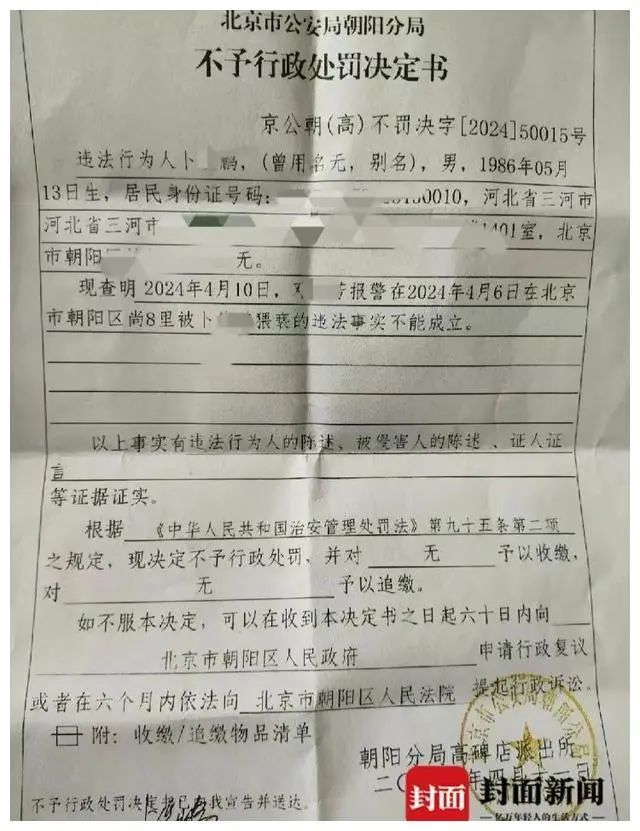 北京市公安局朝阳分局
不予行政处罚决定书
京公朝(高)不罚决字[2024]50015号
违法行为人卜 鹏,(曾用名无,别名),男,1986年05月
13日生,居民身份证号码: 0010,河北省三河市
河北省三河市 1401室,北京
市朝阳 无。
现查明2024年4月10日, 报警在2024年4月6日在北京
市朝阳区尚8里被卜 猥亵的违法事实不能成立。
以上事实有违法行为人的陈述、被侵害人的陈述、证人证
言
等证据证实。
根据《中华人民共和国治安管理处罚法》第九十五条第二项
之规定,现决定不予行政处罚,并对 无 予以收缴,
对 无 予以追缴。
如不服本决定,可以在收到本决定书之日起六十日内向
北京市朝阳区人民政府 申请行政复议
或者在六个月内依法向 北京市朝阳区人民法院 提起行政诉讼。
附:收缴/追缴物品清单
朝阳分局高碑店派出所
二〇 年四月
不予行政处罚决定书已 我宣告并送达。
封面 封面新闻
亿万年轻人的生活方式